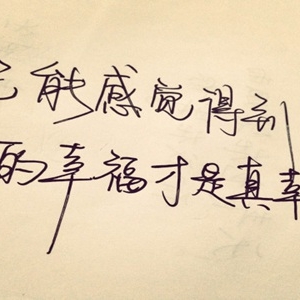 能感觉得到
的幸福才是真幸